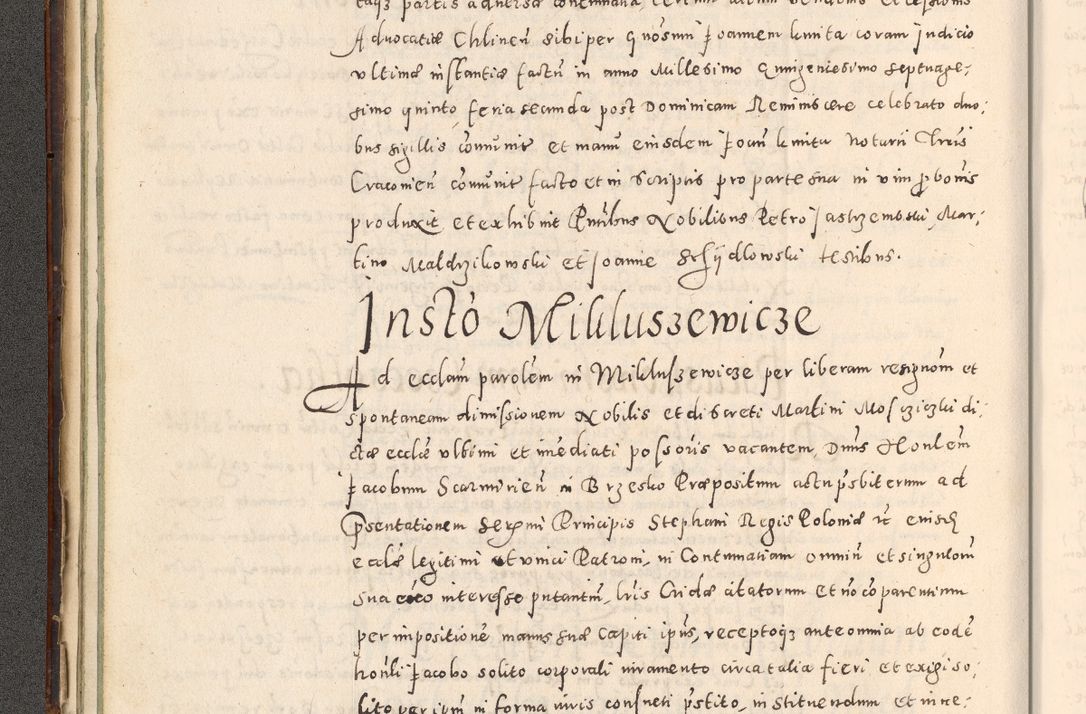 Advocatiæ Chlinen̄ sibi per G nōsmn Joannem Limita coram Judicio
ultimæ instantiæ factū in anno Millesimo Quingentesimo septuage-
simo quinto feria secunda post Dominicam Reminiscere celebrato duo-
bus sigillis com̄unit et manū eiusdem Joan̄ Limita Notarii Juris
Cracovien̄ com̄unit facto et in Scriptis pro parte sua in vim probōnis
produxit et exhibuit P̄ntibus Nobilibus Petro Jastrzembski Mar-
tino Maldrzikowski et Joanne Schÿdlowski testibus.
Institō Mikluszewicze
Ad eccl̄iam parōlem in Mikluszewicze per liberam resignōm et
spontaneam dimissionem Nobilis et discreti Martini Moszczicki di-
ctæ eccl̄iæ ultimi et im̄ediati possōris vacantem, Dn̄us Honl̄em
Jacobum Scarmirien̄ in Brzesko Præpositum actu p̄sbiterum ad
p̄sentationem Ser̄mi Principis Stephani Regis Poloniæ ēt eiusd̄
eccl̄æ legitimi et unici Patroni, in Contumatiam omniū et singulorū
sua eō interesse putantiū, Lr̄is Cridæ citatorum et nō cōparentium
per impositionē manus suæ Capiti ipius, receptoq̄ ante omnia ab eodē
honl̄i Jacobo solito corporali iuramento circa talia fieri et exigi so-
lito per ipm̄ in forma iuris consueti p̄stito, instituendum et inue-